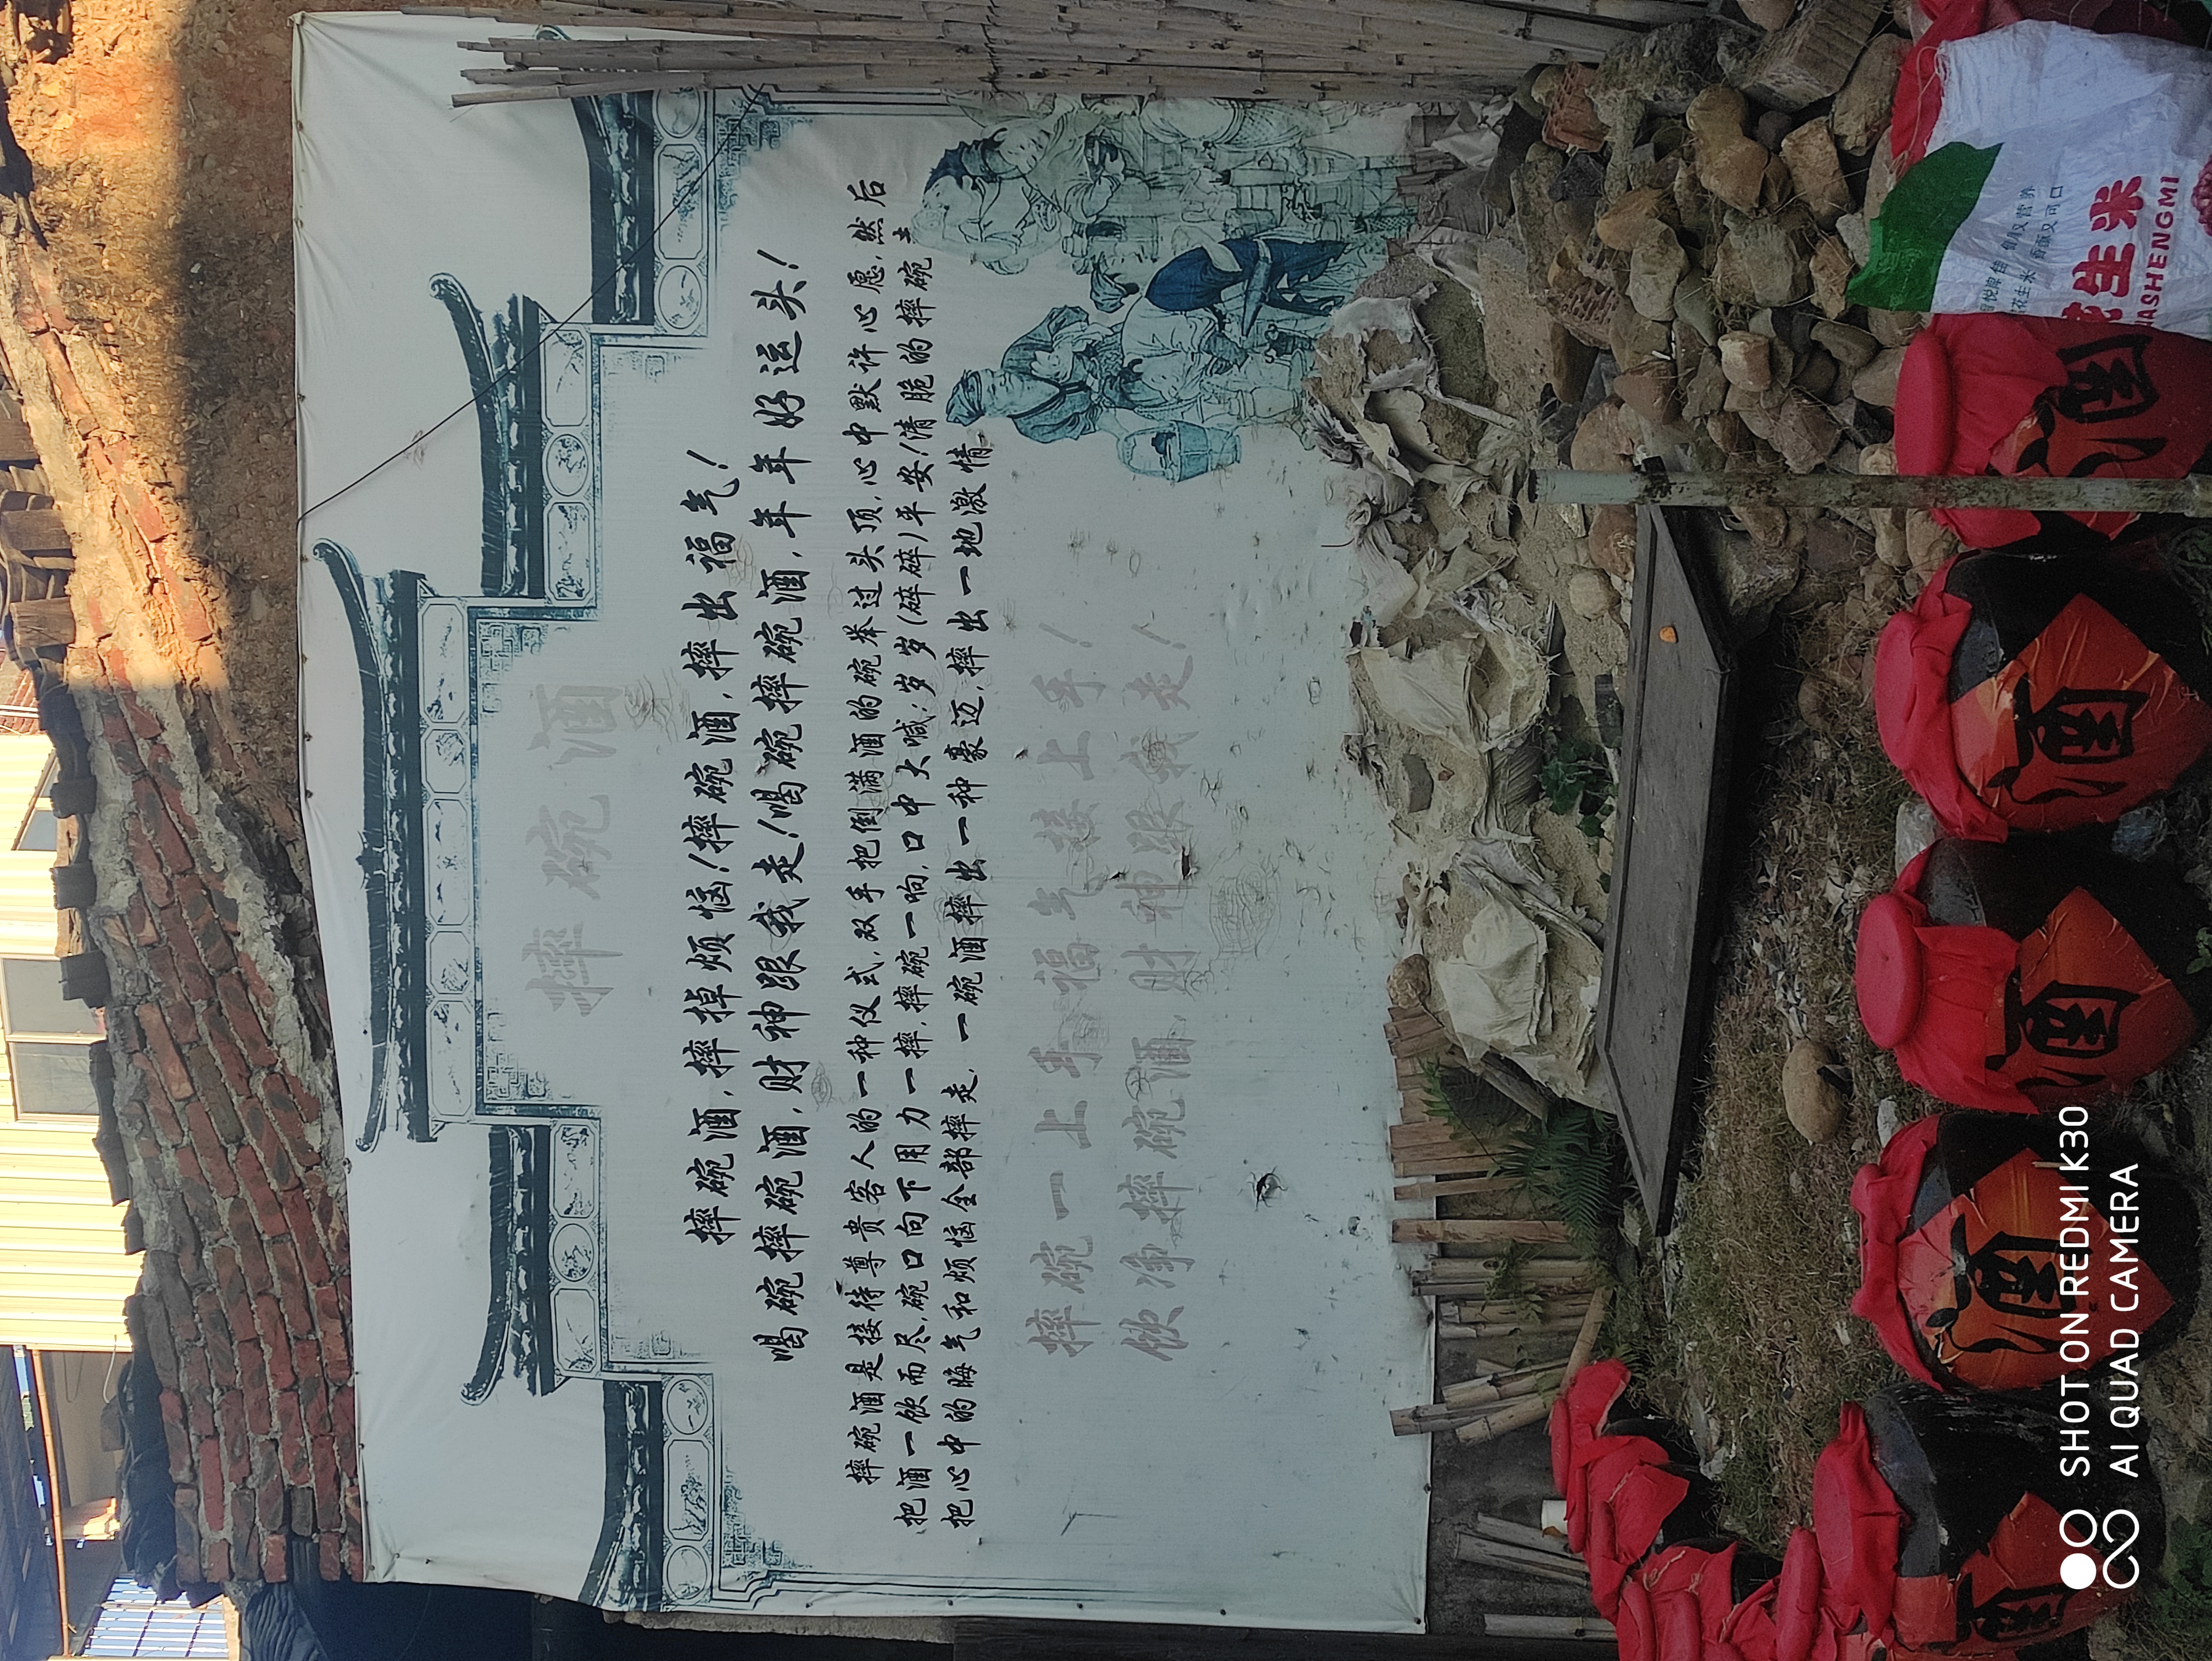 摔碗酒
摔碗酒，摔掉烦恼！摔碗酒，摔出福气！
喝碗摔碗酒，财神跟我走！喝碗摔碗酒，年年好运头！
摔碗酒是接待尊贵客人的一种仪式，双手把倒满酒的碗举过头顶，心中默许心愿，然后
把酒一饮而尽，碗口向下用力一摔，摔碗一响，口中大喊：岁岁（碎碎）平安！清脆的摔碗
把心中的晦气和烦恼全部摔走，一碗酒摔出一种豪迈，摔出一地激情
摔碗一上手 福气接上手！
饮净摔碗酒 财神跟我走！
酒
酒
酒
酒
酒
酒
花生米
HUASHENGMI
SHOT ON REDMI K30
AI QUAD CAMERA